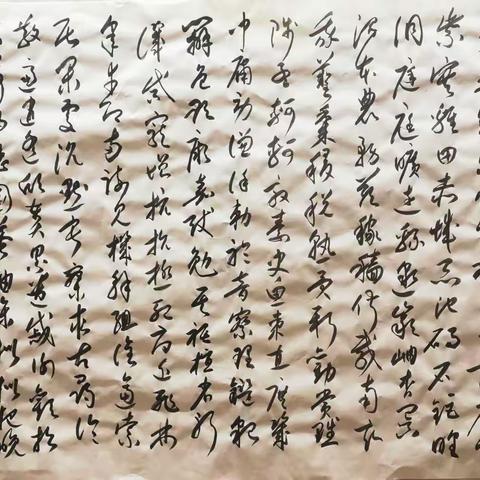 紫塞雞田赤城昆池碣石鉅野
洞庭曠遠緜邈巖岫杳冥
治本於農務茲稼穡俶載南畝
我藝黍稷稅熟貢新勸賞黜
陟孟軻敦素史魚秉直庶幾
中庸勞謙謹敕聆音察理鑑貌
辨色貽厥嘉猷勉其祗植省躬
譏誡寵增抗極殆辱近恥林
皋幸即兩疏見機解組誰逼索
居閑處沉默寂寥求古尋論
散慮逍遙欣奏累遣慼謝歡招
的歷園莽抽條枇杷晚